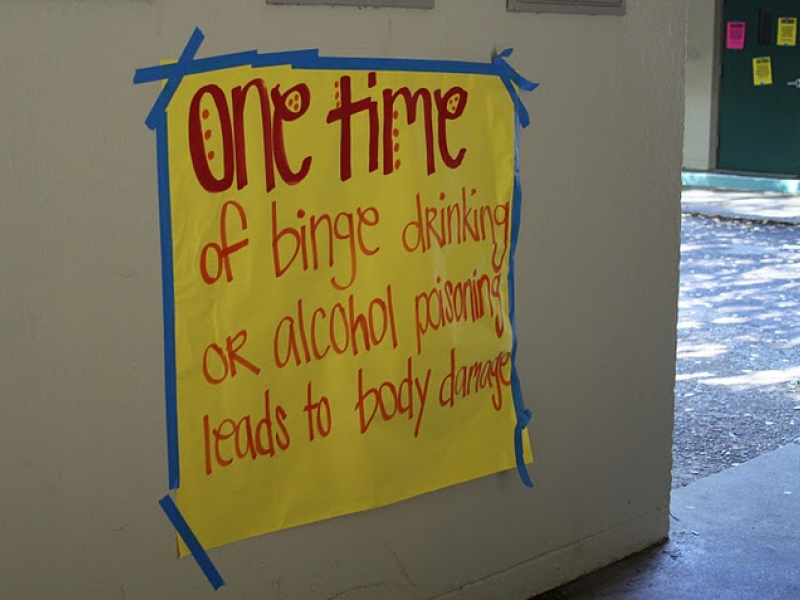 one time
of binge drinking
or alcohol poisoning
leads to body damage